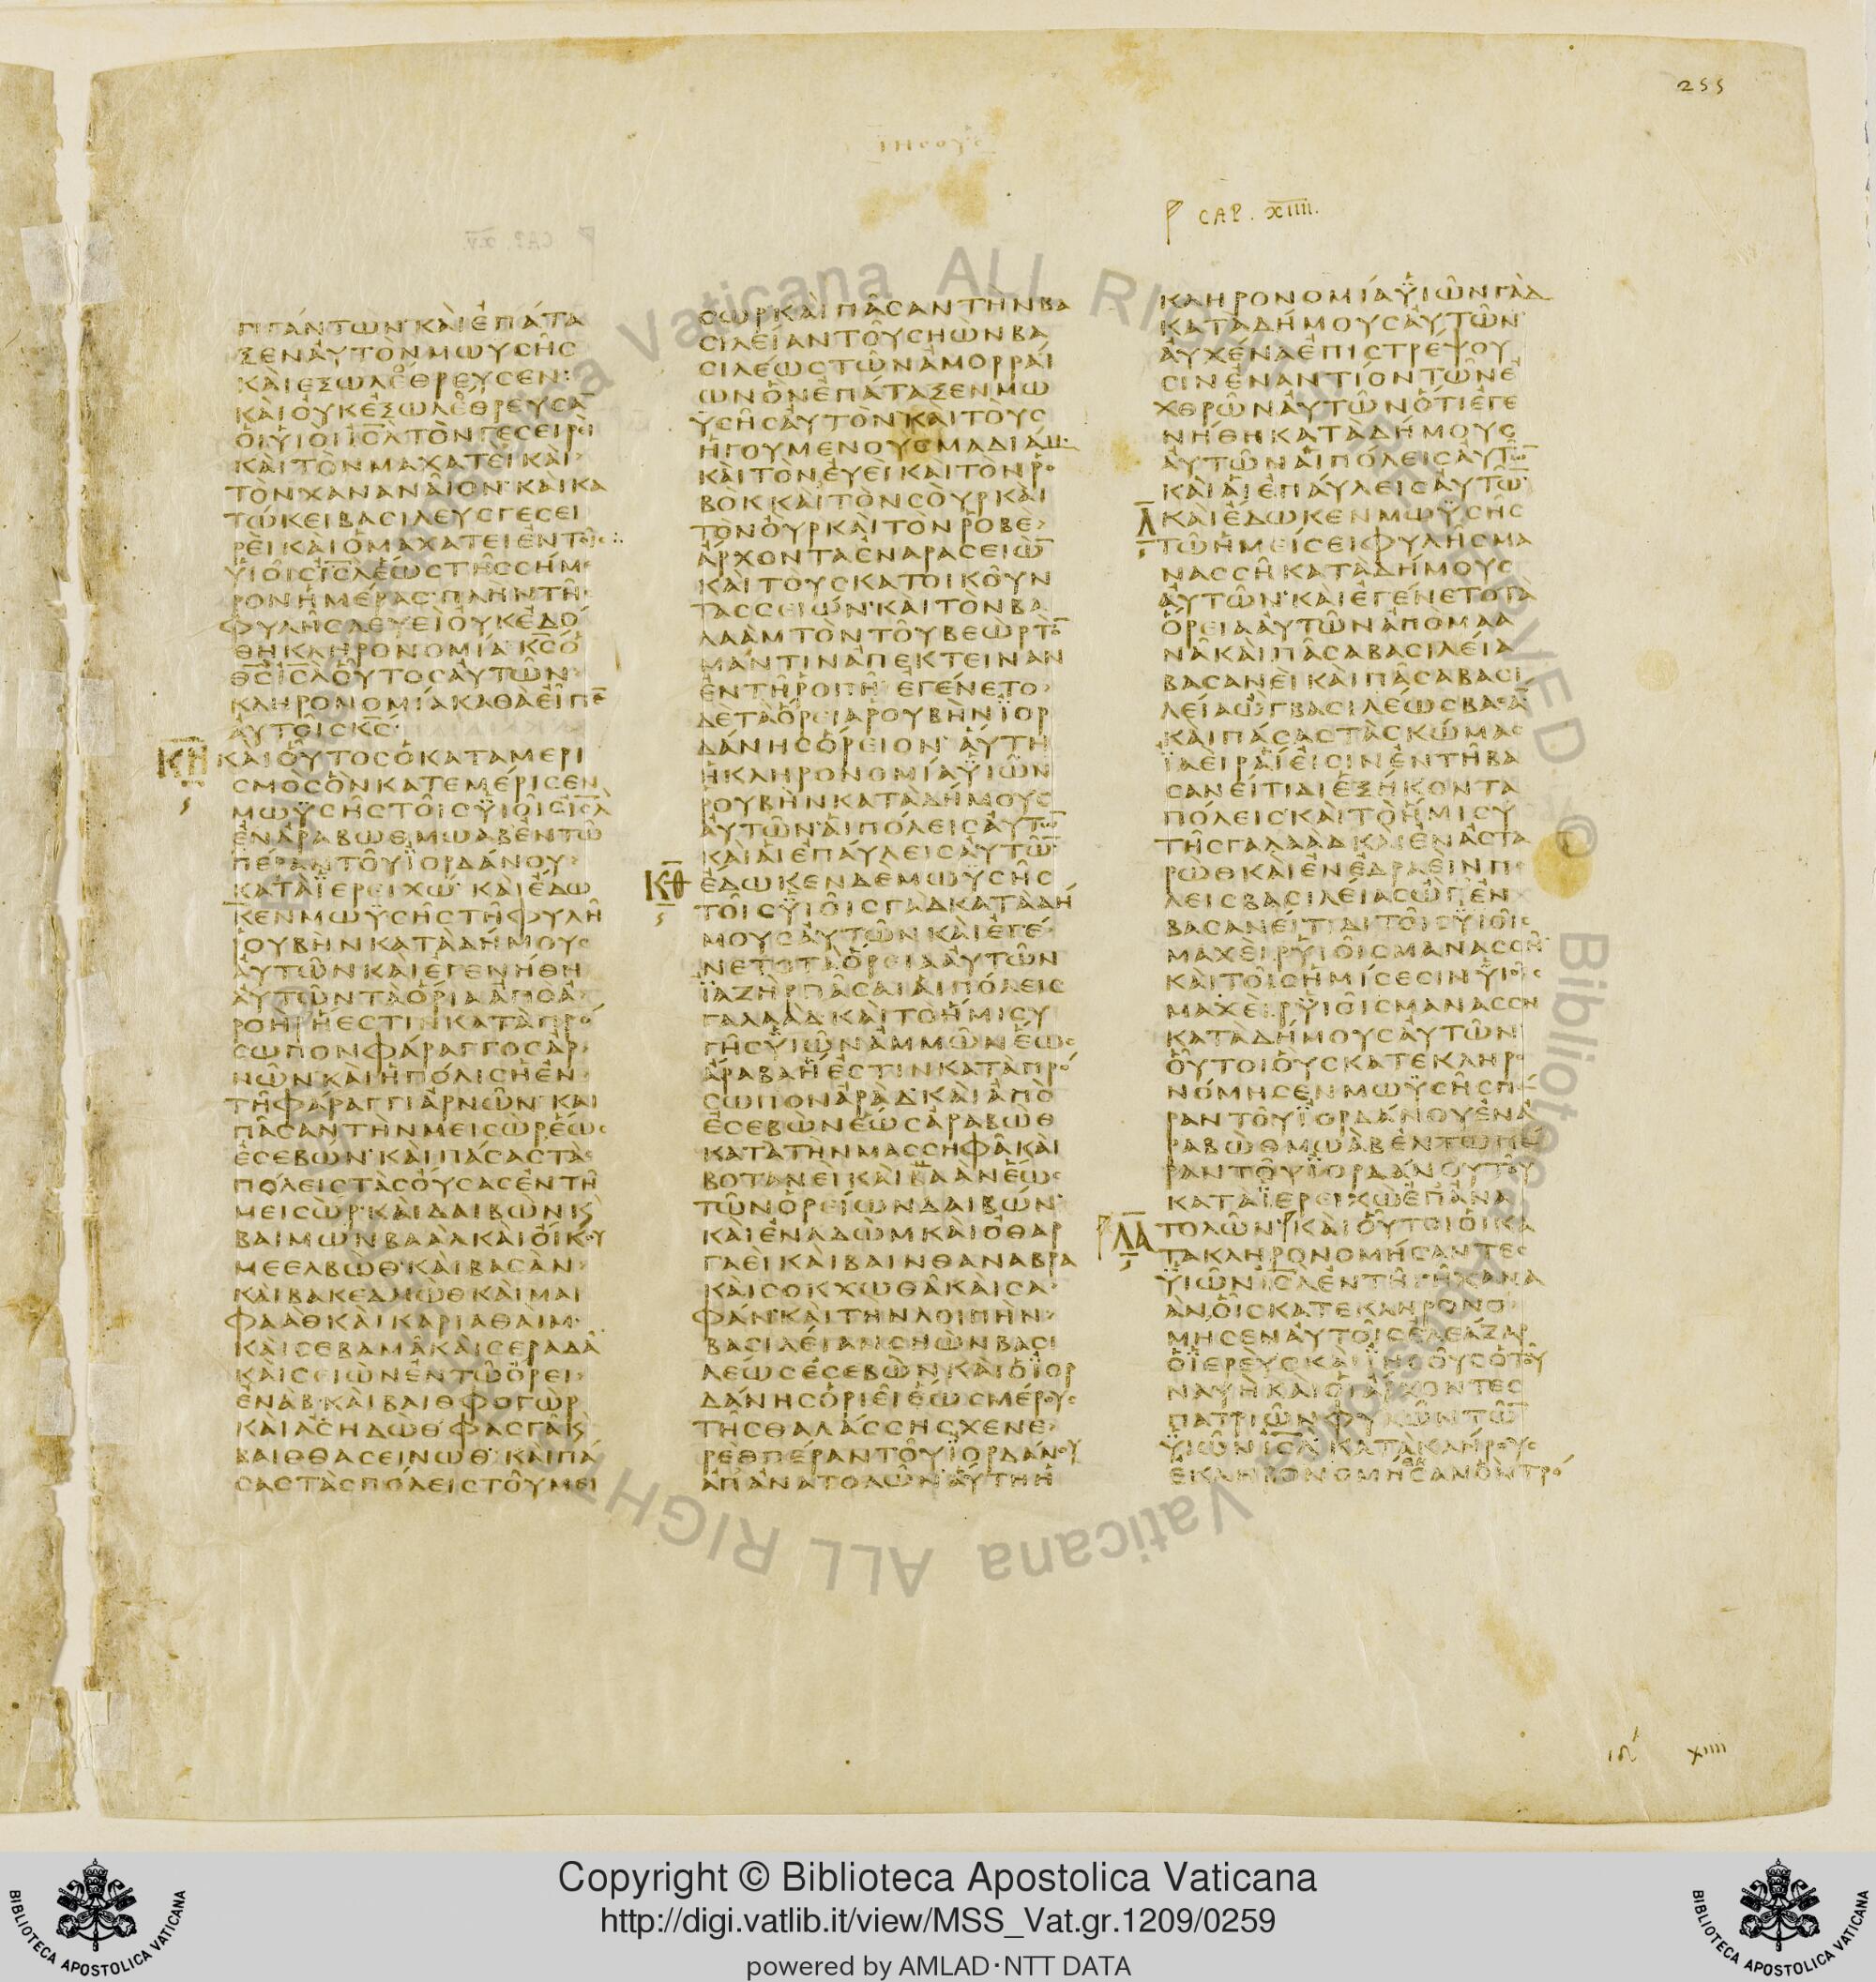 255
ΙΗΣΟΥΣ
CAP. XIIII.
ΓΙΓΑΝΤΩΝ ΚΑΙ ΕΠΑΤΑ
ΞΕΝ ΑΥΤΟΝ ΜΩΥΣΗΣ
ΚΑΙ ΕΞΩΛΕΘΡΕΥΣΕΝ
ΚΑΙ ΟΥΚ ΕΞΩΛΕΘΡΕΥΣΑ̅
ΟΙ ΥΙΟΙ Ι̅Σ̅Λ̅ ΤΟΝ ΓΕΣΕΙΡΕΙ
ΚΑΙ ΤΟΝ ΜΑΧΑΤΕΙ ΚΑΙ
ΤΟΝ ΧΑΝΑΝΑΙΟΝ ΚΑΙ ΚΑ
ΤΩΚΕΙ ΒΑΣΙΛΕΥΣ ΓΕΣΕΙ
ΡΕΙ ΚΑΙ Ο ΜΑΧΑΤΕΙ ΕΝ ΤΟΙΣ
ΥΙΟΙΣ Ι̅Σ̅Λ̅ ΕΩΣ ΤΗΣ ΣΗΜΕ
ΡΟΝ ΗΜΕΡΑΣ ΠΛΗΝ ΤΗΣ
ΦΥΛΗΣ ΛΕΥΕΙ ΟΥΚ ΕΔΟ
ΘΗ ΚΛΗΡΟΝΟΜΙΑ Κ̅Σ̅ Ο
Θ̅Σ̅ Ι̅Σ̅Λ̅ ΟΥΤΟΣ ΑΥΤΩΝ
ΚΛΗΡΟΝΟΜΙΑ ΚΑΘΑ ΕΙΠΕ̅
ΑΥΤΟΙΣ Κ̅Σ̅
Κ̅Η̅ ΚΑΙ ΟΥΤΟΣ Ο ΚΑΤΑΜΕΡΙ
ΣΜΟΣ ΟΝ ΚΑΤΕΜΕΡΙΣΕΝ
ΜΩΥΣΗΣ ΤΟΙΣ ΥΙΟΙΣ Ι̅Σ̅Λ̅
ΕΝ ΑΡΑΒΩΘ ΜΩΑΒ ΕΝ ΤΩ
ΠΕΡΑΝ ΤΟΥ ΙΟΡΔΑΝΟΥ
ΚΑΤΑ ΙΕΡΕΙΧΩ ΚΑΙ ΕΔΩ
ΚΕΝ ΜΩΥΣΗΣ ΤΗ ΦΥΛΗ
ΡΟΥΒΗΝ ΚΑΤΑ ΔΗΜΟΥΣ
ΑΥΤΩΝ ΚΑΙ ΕΓΕΝΗΘΗ
ΑΥΤΩΝ ΤΑ ΟΡΙΑ ΑΠΟ Α
ΡΟΗΡ Η ΕΣΤΙΝ ΚΑΤΑ ΠΡΟ
ΣΩΠΟΝ ΦΑΡΑΓΓΟΣ ΑΡ
ΝΩΝ ΚΑΙ Η ΠΟΛΙΣ Η ΕΝ
ΤΗ ΦΑΡΑΓΓΙ ΑΡΝΩΝ ΚΑΙ
ΠΑΣΑΝ ΤΗΝ ΜΕΙΣΩΡ ΕΩΣ
ΕΣΕΒΩΝ ΚΑΙ ΠΑΣΑΣ ΤΑΣ
ΠΟΛΕΙΣ ΤΑΣ ΟΥΣΑΣ ΕΝ ΤΗ
ΜΕΙΣΩΡ ΚΑΙ ΔΑΙΒΩΝ Ϗ
ΒΑΙΜΩΝ ΒΑΑΛ ΚΑΙ ΟΙΚΟΥ
ΜΕΕΛΒΩΘ ΚΑΙ ΒΑΣΑΝ
ΚΑΙ ΒΑΚΕΔΜΩΘ ΚΑΙ ΜΑΙ
ΦΑΑΘ ΚΑΙ ΚΑΡΙΑΘΑΙΜ
ΚΑΙ ΣΕΒΑΜΑ ΚΑΙ ΣΕΡΑΔΑ
ΚΑΙ ΣΕΙΩΝ ΕΝ ΤΩ ΟΡΕΙ
ΕΝΑΒ ΚΑΙ ΒΑΙΘΦΟΓΩΡ
ΚΑΙ ΑΣΗΔΩΘ ΦΑΣΓΑ Ϗ
ΒΑΙΘΘΑΣΕΙΝΩΘ ΚΑΙ ΠΑ
ΣΑΣ ΤΑΣ ΠΟΛΕΙΣ ΤΟΥ ΜΕΙ
ΣΩΡ ΚΑΙ ΠΑΣΑΝ ΤΗΝ ΒΑ
ΣΙΛΕΙΑΝ ΤΟΥ ΣΗΩΝ ΒΑ
ΣΙΛΕΩΣ ΤΩΝ ΑΜΟΡΡΑΙ
ΩΝ ΟΝ ΕΠΑΤΑΞΕΝ ΜΩ
ΥΣΗΣ ΑΥΤΟΝ ΚΑΙ ΤΟΥΣ
ΗΓΟΥΜΕΝΟΥΣ ΜΑΔΙΑΜ
ΚΑΙ ΤΟΝ ΕΥΕΙ ΚΑΙ ΤΟΝ ΡΟ
ΒΟΚ ΚΑΙ ΤΟΝ ΣΟΥΡ ΚΑΙ
ΤΟΝ ΟΥΡ ΚΑΙ ΤΟΝ ΡΟΒΕ
ΑΡΧΟΝΤΑΣ ΕΝΑΡΑ ΣΕΙΩ̅
ΚΑΙ ΤΟΥΣ ΚΑΤΟΙΚΟΥΝ
ΤΑΣ ΣΕΙΩΝ ΚΑΙ ΤΟΝ ΒΑ
ΛΑΑΜ ΤΟΝ ΤΟΥ ΒΕΩΡ ΤΟ̅
ΜΑΝΤΙΝ ΑΠΕΚΤΕΙΝΑΝ
ΕΝ ΤΗ ΡΟΠΗ ΕΓΕΝΕΤΟ
ΔΕ ΤΑ ΟΡΕΙΑ ΡΟΥΒΗΝ ΙΟΡ
ΔΑΝΗΣ ΟΡΕΙΟΝ ΑΥΤΗ
Η ΚΛΗΡΟΝΟΜΙΑ ΥΙΩΝ
ΡΟΥΒΗΝ ΚΑΤΑ ΔΗΜΟΥΣ
ΑΥΤΩΝ ΑΙ ΠΟΛΕΙΣ ΑΥΤΩ̅
ΚΑΙ ΑΙ ΕΠΑΥΛΕΙΣ ΑΥΤΩ̅
Κ̅Θ̅ ΕΔΩΚΕΝ ΔΕ ΜΩΥΣΗΣ
ΤΟΙΣ ΥΙΟΙΣ ΓΑΔ ΚΑΤΑ ΔΗ
ΜΟΥΣ ΑΥΤΩΝ ΚΑΙ ΕΓΕ
ΝΕΤΟ ΤΑ ΟΡΕΙΑ ΑΥΤΩΝ
ΙΑΖΗΡ ΠΑΣΑΙ ΑΙ ΠΟΛΕΙΣ
ΓΑΛΑΑΔ ΚΑΙ ΤΟ ΗΜΙΣΥ
ΓΗΣ ΥΙΩΝ ΑΜΜΩΝ ΕΩΣ
ΑΡΑΒΑ Η ΕΣΤΙΝ ΚΑΤΑ ΠΡΟ
ΣΩΠΟΝ ΑΡΑΔ ΚΑΙ ΑΠΟ
ΕΣΕΒΩΝ ΕΩΣ ΑΡΑΒΩΘ
ΚΑΤΑ ΤΗΝ ΜΑΣΣΗΦΑ ΚΑΙ
ΒΟΤΑΝΕΙ ΚΑΙ ΒΑΑΝ ΕΩΣ
ΤΩΝ ΟΡΕΙΩΝ ΔΑΙΒΩΝ
ΚΑΙ ΕΝΑΔΩΜ ΚΑΙ ΟΘΑΡ
ΓΑΕΙ ΚΑΙ ΒΑΙΝΘΑΝΑΒΡΑ
ΚΑΙ ΣΟΚΧΩΘΑ ΚΑΙ ΣΑ
ΦΑΝ ΚΑΙ ΤΗΝ ΛΟΙΠΗΝ
ΒΑΣΙΛΕΙΑΝ ΣΗΩΝ ΒΑΣΙ
ΛΕΩΣ ΕΣΕΒΩΝ ΚΑΙ Ο ΙΟΡ
ΔΑΝΗΣ ΟΡΙΕΙ ΕΩΣ ΜΕΡΟΥΣ
ΤΗΣ ΘΑΛΑΣΣΗΣ ΧΕΝΕ
ΡΕΘ ΠΕΡΑΝ ΤΟΥ ΙΟΡΔΑΝΟΥ
ΑΠ ΑΝΑΤΟΛΩΝ ΑΥΤΗ Η
ΚΛΗΡΟΝΟΜΙΑ ΥΙΩΝ ΓΑΔ
ΚΑΤΑ ΔΗΜΟΥΣ ΑΥΤΩΝ
ΑΥΧΕΝΑ ΕΠΙΣΤΡΕΨΟΥ
ΣΙΝ ΕΝΑΝΤΙΟΝ ΤΩΝ Ε
ΧΘΡΩΝ ΑΥΤΩΝ ΟΤΙ ΕΓΕ
ΝΗΘΗ ΚΑΤΑ ΔΗΜΟΥΣ
ΑΥΤΩΝ ΑΙ ΠΟΛΕΙΣ ΑΥΤΩ̅
ΚΑΙ ΑΙ ΕΠΑΥΛΕΙΣ ΑΥΤΩ̅
Λ̅ ΚΑΙ ΕΔΩΚΕΝ ΜΩΥΣΗΣ
ΤΩ ΗΜΕΙΣΕΙ ΦΥΛΗΣ ΜΑ
ΝΑΣΣΗ ΚΑΤΑ ΔΗΜΟΥΣ
ΑΥΤΩΝ ΚΑΙ ΕΓΕΝΕΤΟ ΤΑ
ΟΡΕΙΑ ΑΥΤΩΝ ΑΠΟ ΜΑΑ
ΝΑ ΚΑΙ ΠΑΣΑ ΒΑΣΙΛΕΙΑ
ΒΑΣΑΝΕΙ ΚΑΙ ΠΑΣΑ ΒΑΣΙ
ΛΕΙΑ ΩΓ ΒΑΣΙΛΕΩΣ ΒΑΣΑ̅
ΚΑΙ ΠΑΣΑΣ ΤΑΣ ΚΩΜΑΣ
ΙΑΕΙΡ ΑΙ ΕΙΣΙΝ ΕΝ ΤΗ ΒΑ
ΣΑΝΕΙΤΙΔΙ ΕΞΗΚΟΝΤΑ
ΠΟΛΕΙΣ ΚΑΙ ΤΟ ΗΜΙΣΥ
ΤΗΣ ΓΑΛΑΑΔ ΚΑΙ ΕΝ ΑΣΤΑ
ΡΩΘ ΚΑΙ ΕΝ ΕΔΡΑΕΙΝ ΠΟ
ΛΕΙΣ ΒΑΣΙΛΕΙΑΣ ΩΓ ΕΝ
ΒΑΣΑΝΕΙΤΙΔΙ ΤΟΙΣ ΥΙΟΙΣ
ΜΑΧΕΙΡ ΥΙΟΙΣ ΜΑΝΑΣΣΗ
ΚΑΙ ΤΟΙΣ ΗΜΙΣΕΣΙΝ ΥΙΟΙΣ
ΜΑΧΕΙΡ ΥΙΟΙΣ ΜΑΝΑΣΣΗ
ΚΑΤΑ ΔΗΜΟΥΣ ΑΥΤΩΝ
ΟΥΤΟΙ ΟΥΣ ΚΑΤΕΚΛΗΡΟ
ΝΟΜΗΣΕΝ ΜΩΥΣΗΣ ΠΕ
ΡΑΝ ΤΟΥ ΙΟΡΔΑΝΟΥ ΕΝ Α
ΡΑΒΩΘ ΜΩΑΒ ΕΝ ΤΩ ΠΕ
ΡΑΝ ΤΟΥ ΙΟΡΔΑΝΟΥ ΤΟΥ
ΚΑΤΑ ΙΕΡΕΙΧΩ ΕΠ ΑΝΑ
ΤΟΛΩΝ ΚΑΙ ΟΥΤΟΙ ΟΙ ΚΑ
Λ̅Α̅ ΤΑΚΛΗΡΟΝΟΜΗΣΑΝΤΕΣ
ΥΙΩΝ Ι̅Σ̅Λ̅ ΕΝ ΤΗ ΓΗ ΧΑΝΑ
ΑΝ ΟΙΣ ΚΑΤΕΚΛΗΡΟΝΟ
ΜΗΣΕΝ ΑΥΤΟΙΣ ΕΛΕΑΖΑΡ
Ο ΙΕΡΕΥΣ ΚΑΙ ΙΗΣΟΥΣ Ο ΤΟΥ
ΝΑΥΗ ΚΑΙ ΟΙ ΑΡΧΟΝΤΕΣ
ΠΑΤΡΙΩΝ ΦΥΛΩΝ ΤΩ̅
ΥΙΩΝ Ι̅Σ̅Λ̅ ΚΑΤΑ ΚΛΗΡΟΥΣ
ΕΚΛΗΡΟΝΟΜΗΣΑΝ ΟΝ ΤΡΟ
XIIII
Copyright © Biblioteca Apostolica Vaticana
http://digi.vatlib.it/view/MSS_Vat.gr.1209/0259
powered by AMLAD·NTT DATA
BIBLIOTECA APOSTOLICA VATICANA
BIBLIOTECA APOSTOLICA VATICANA